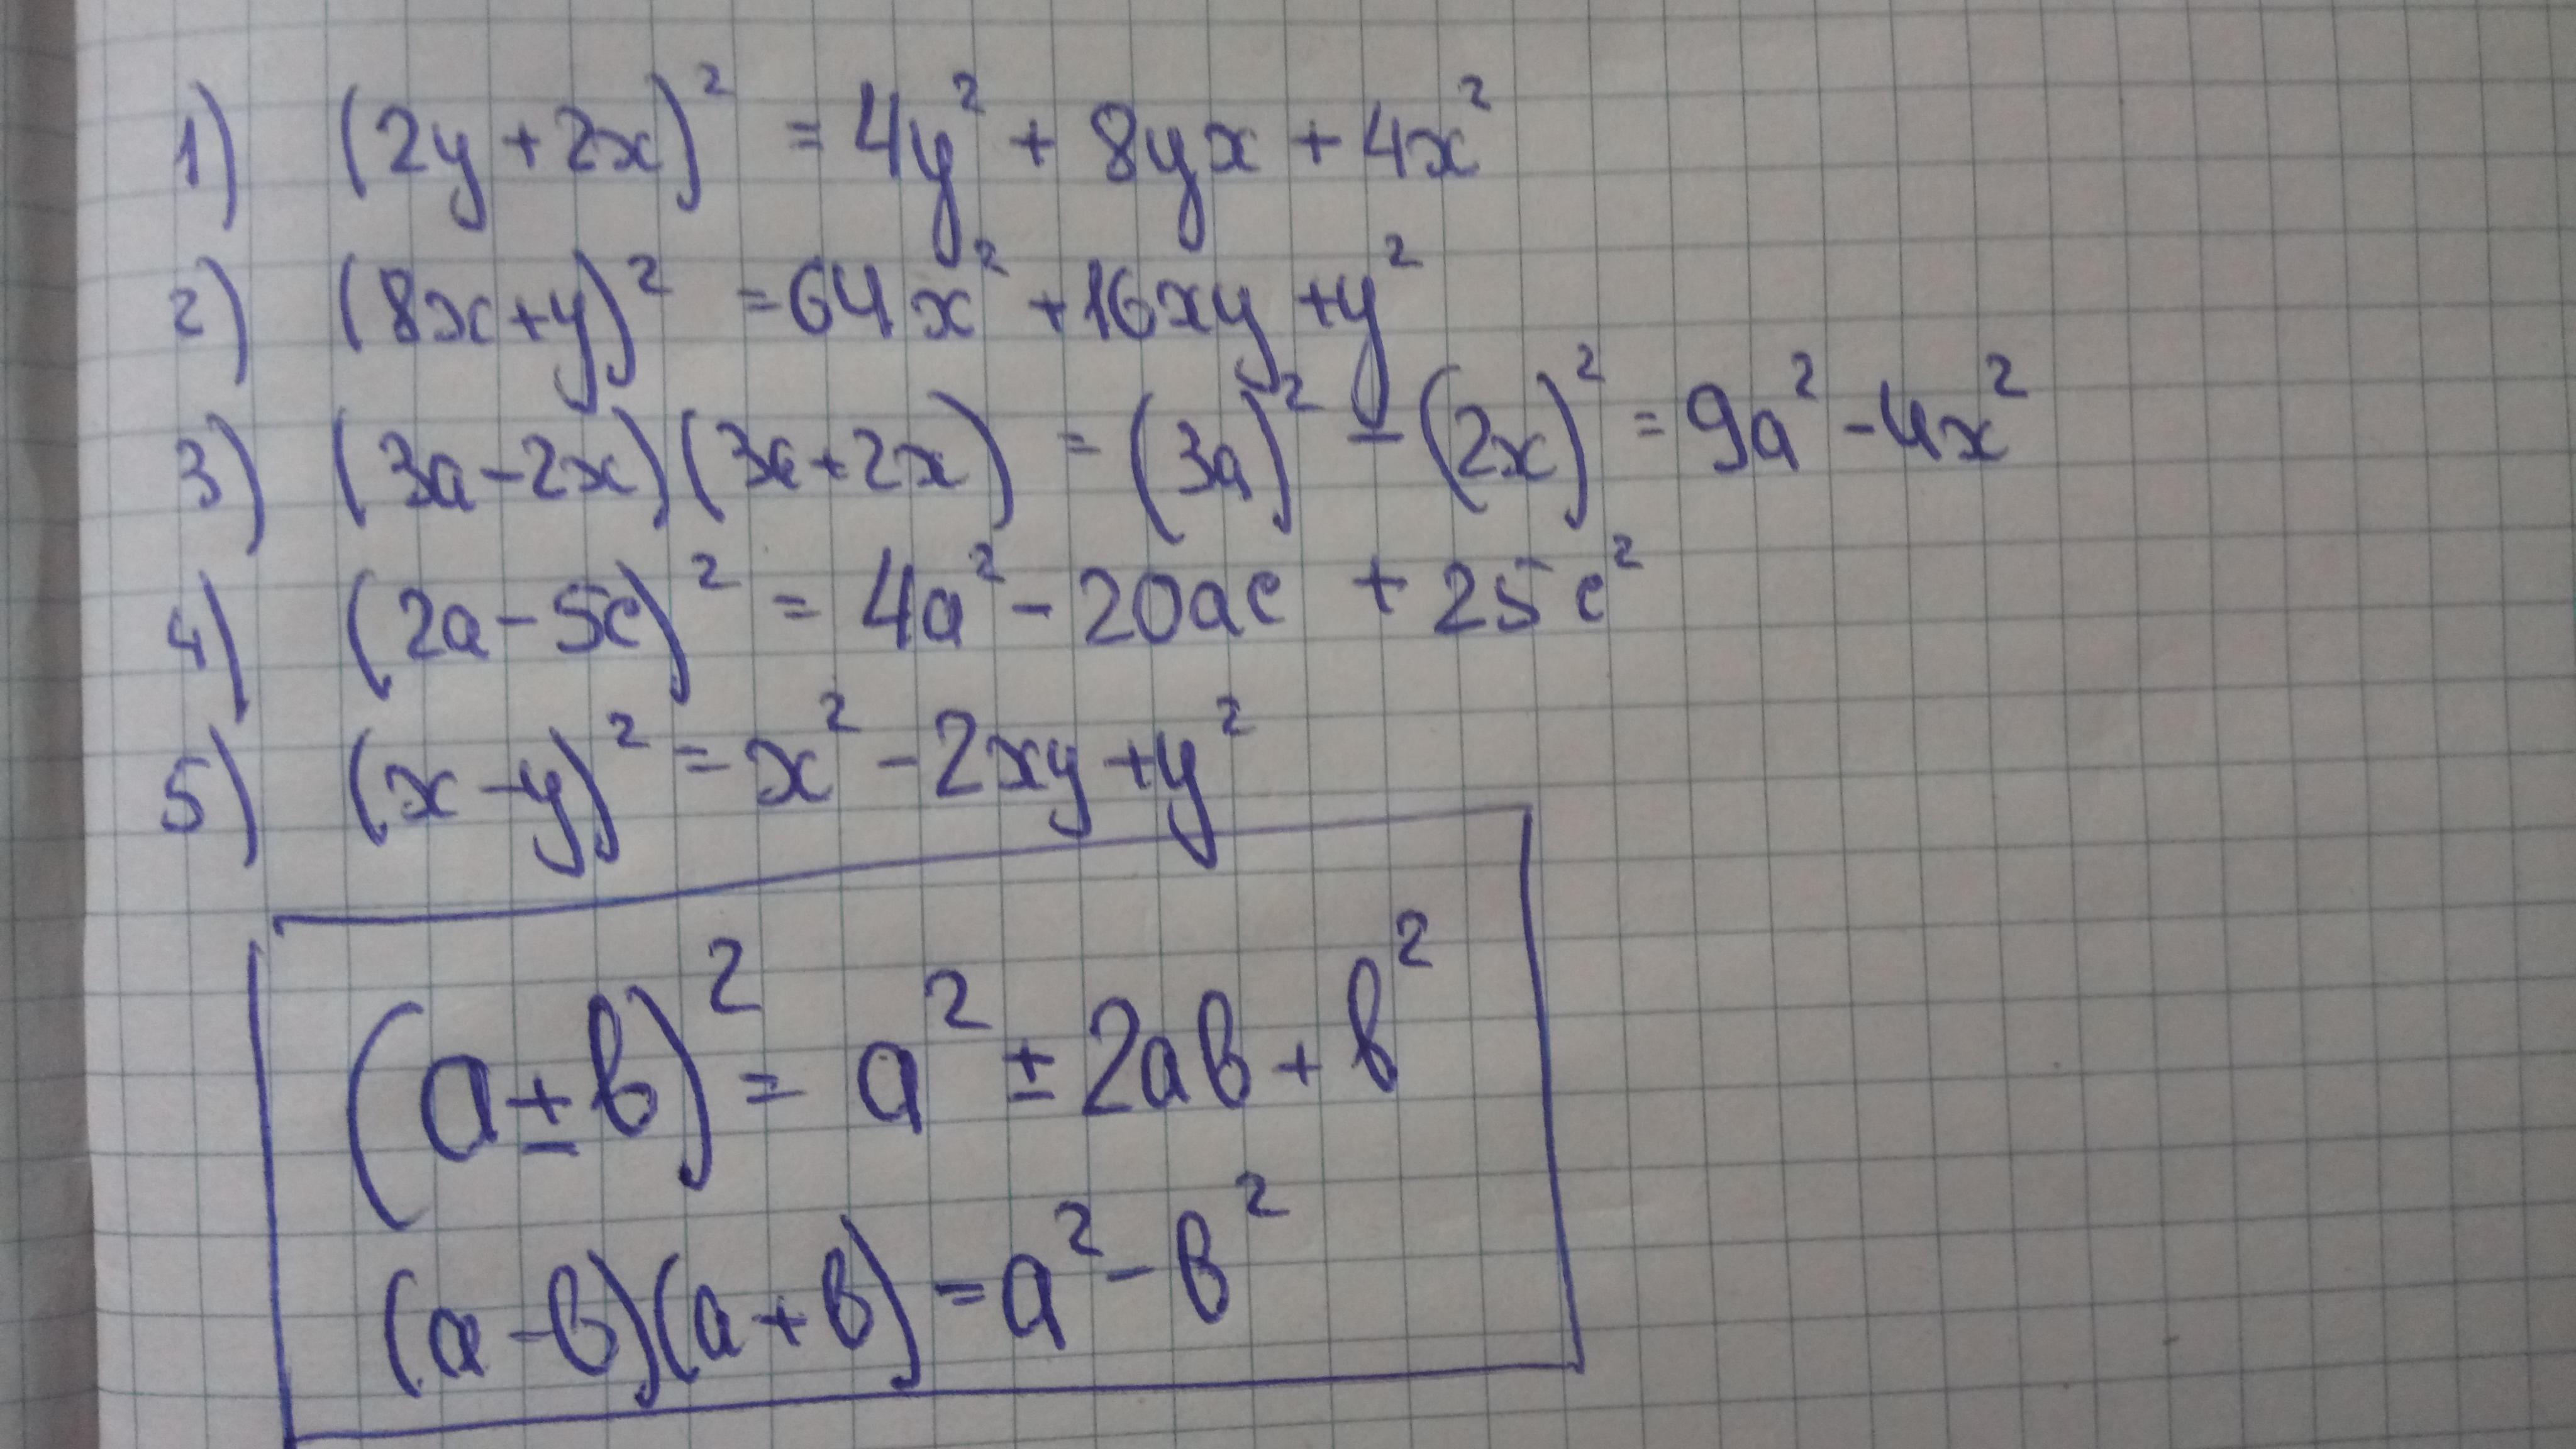 1) (2y+2x)² = 4y² + 8yx + 4x²
2) (8x+y)² = 64x² + 16xy + y²
3) (3a-2x)(3a+2x) = (3a)² - (2x)² = 9a² - 4x²
4) (2a-5c)² = 4a² - 20ac + 25c²
5) (x-y)² = x² - 2xy + y²
(a±b)² = a² ± 2ab + b²
(a-b)(a+b) = a² - b²